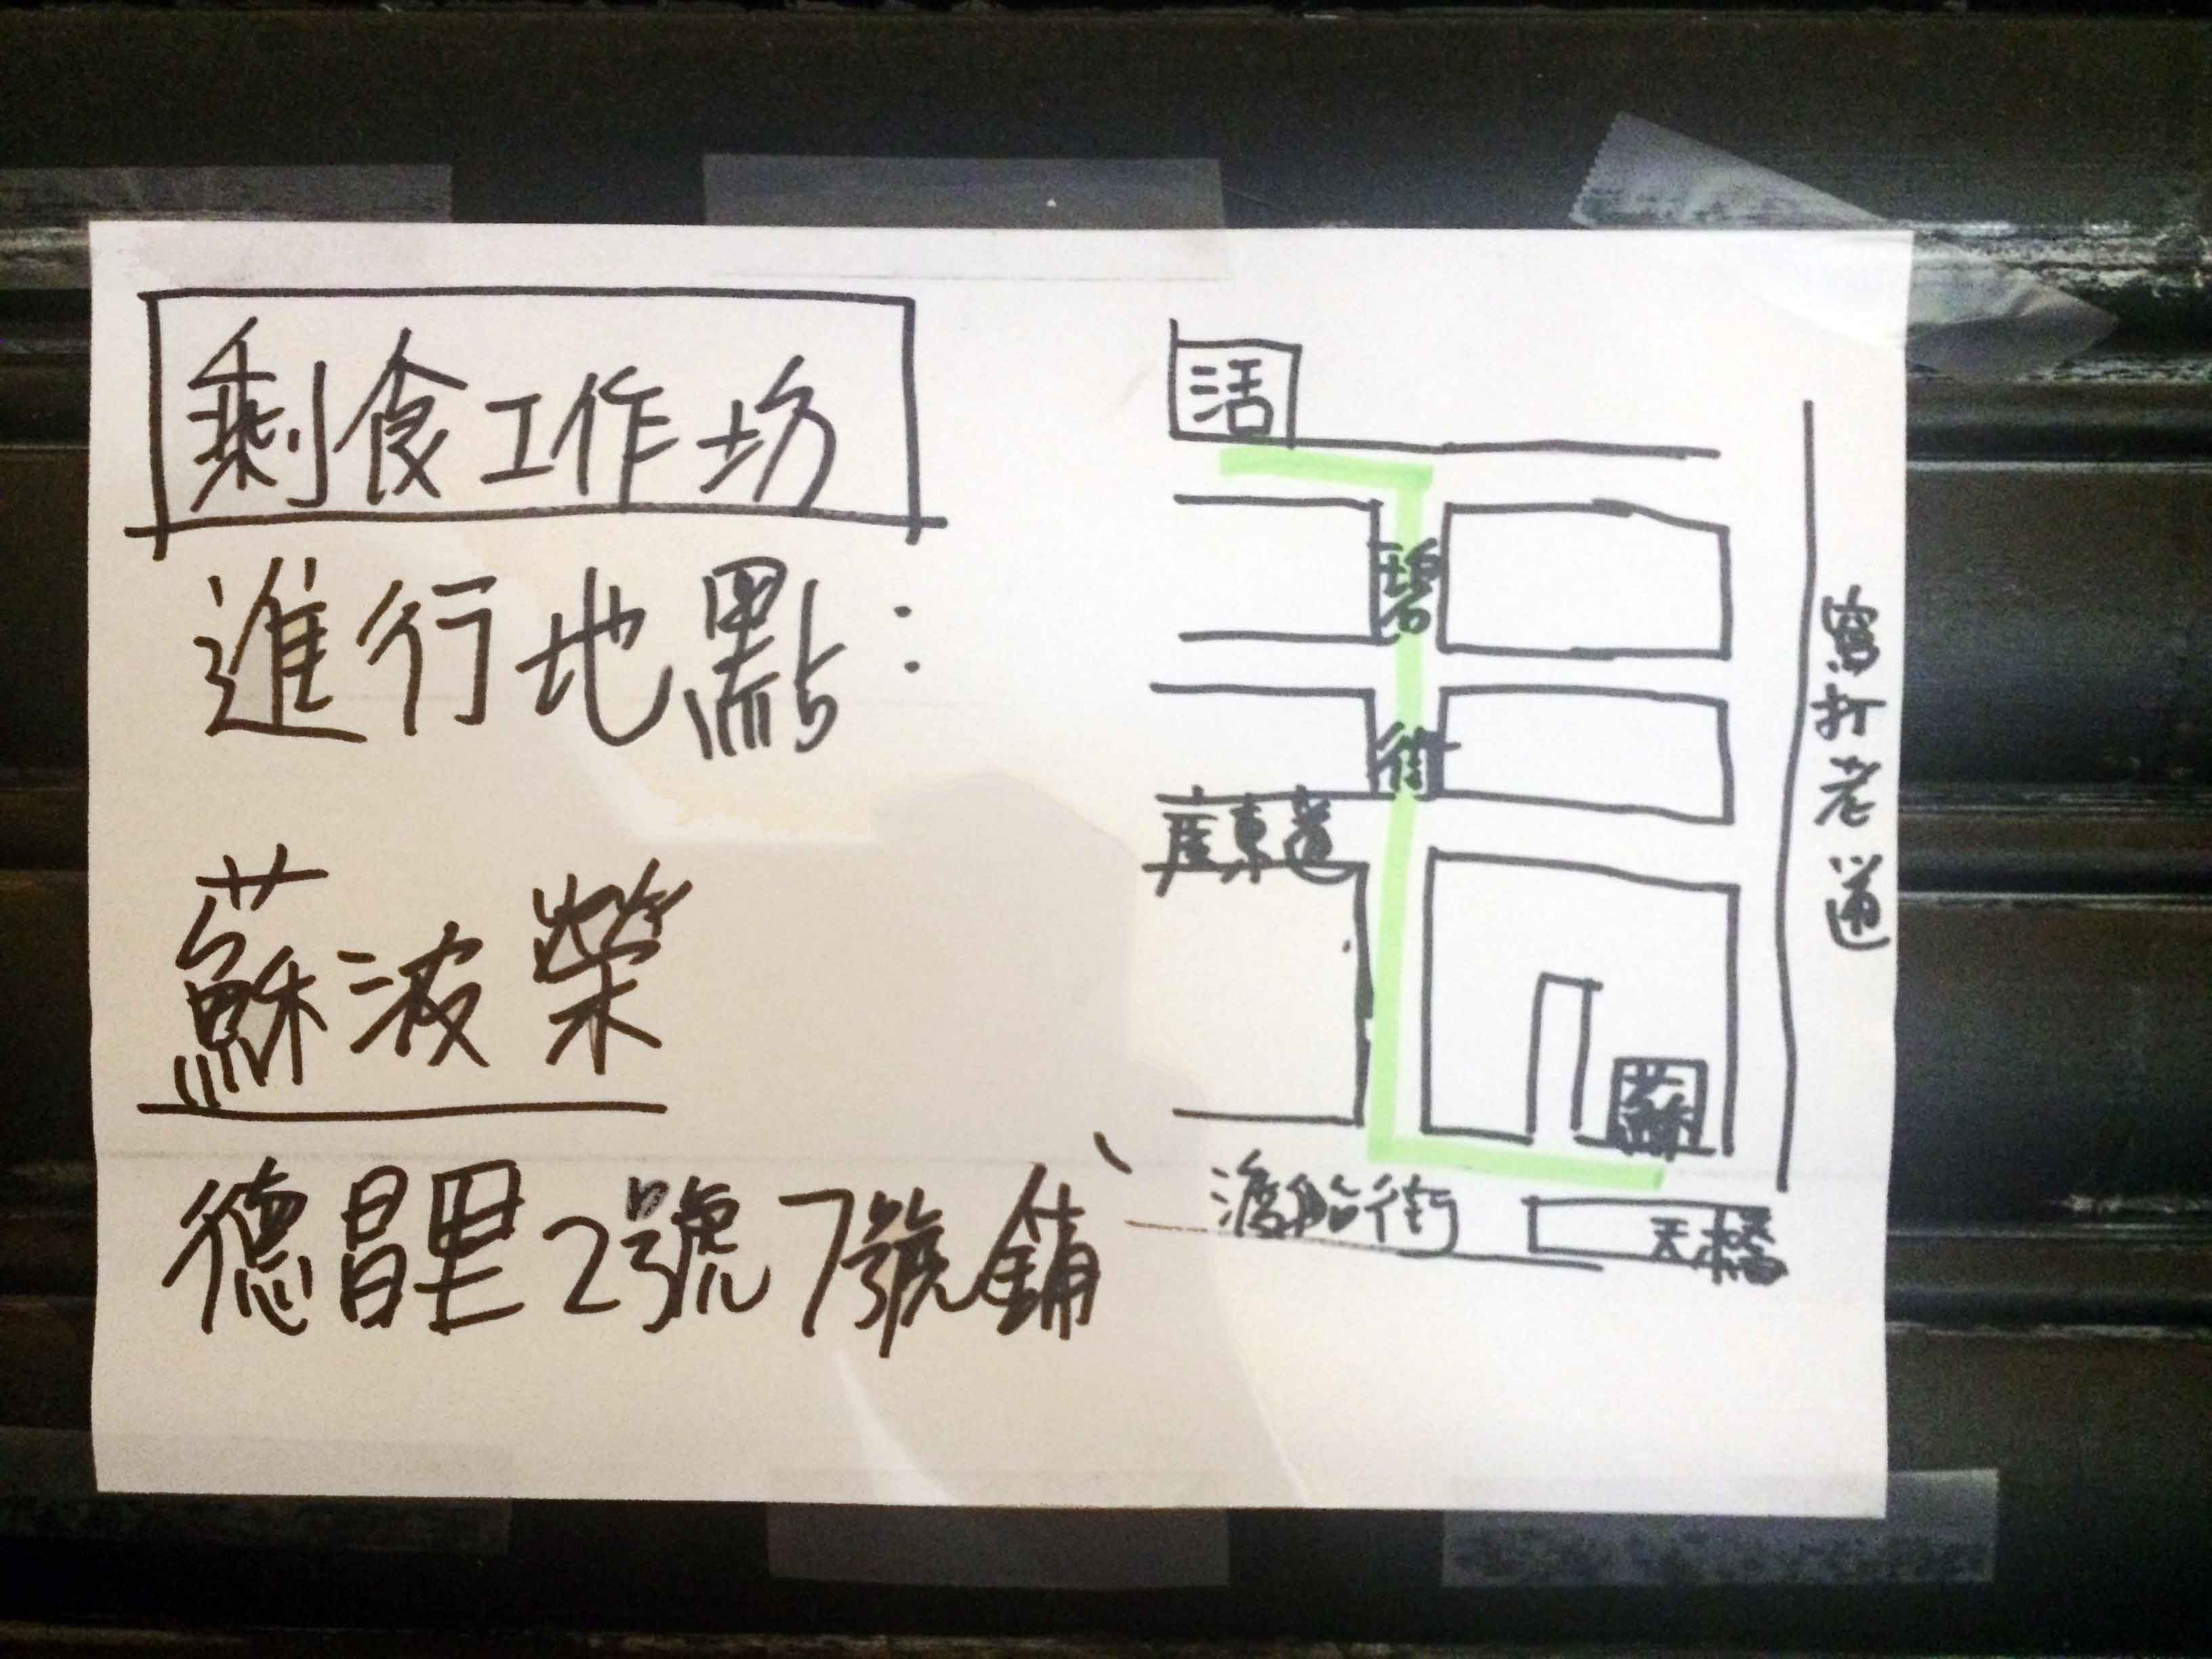 剩食工作坊
進行地點：
蘇波榮
德昌里2號7號舖
活
碧街
窩打老道
廣東道
蘇
渡船街
天橋